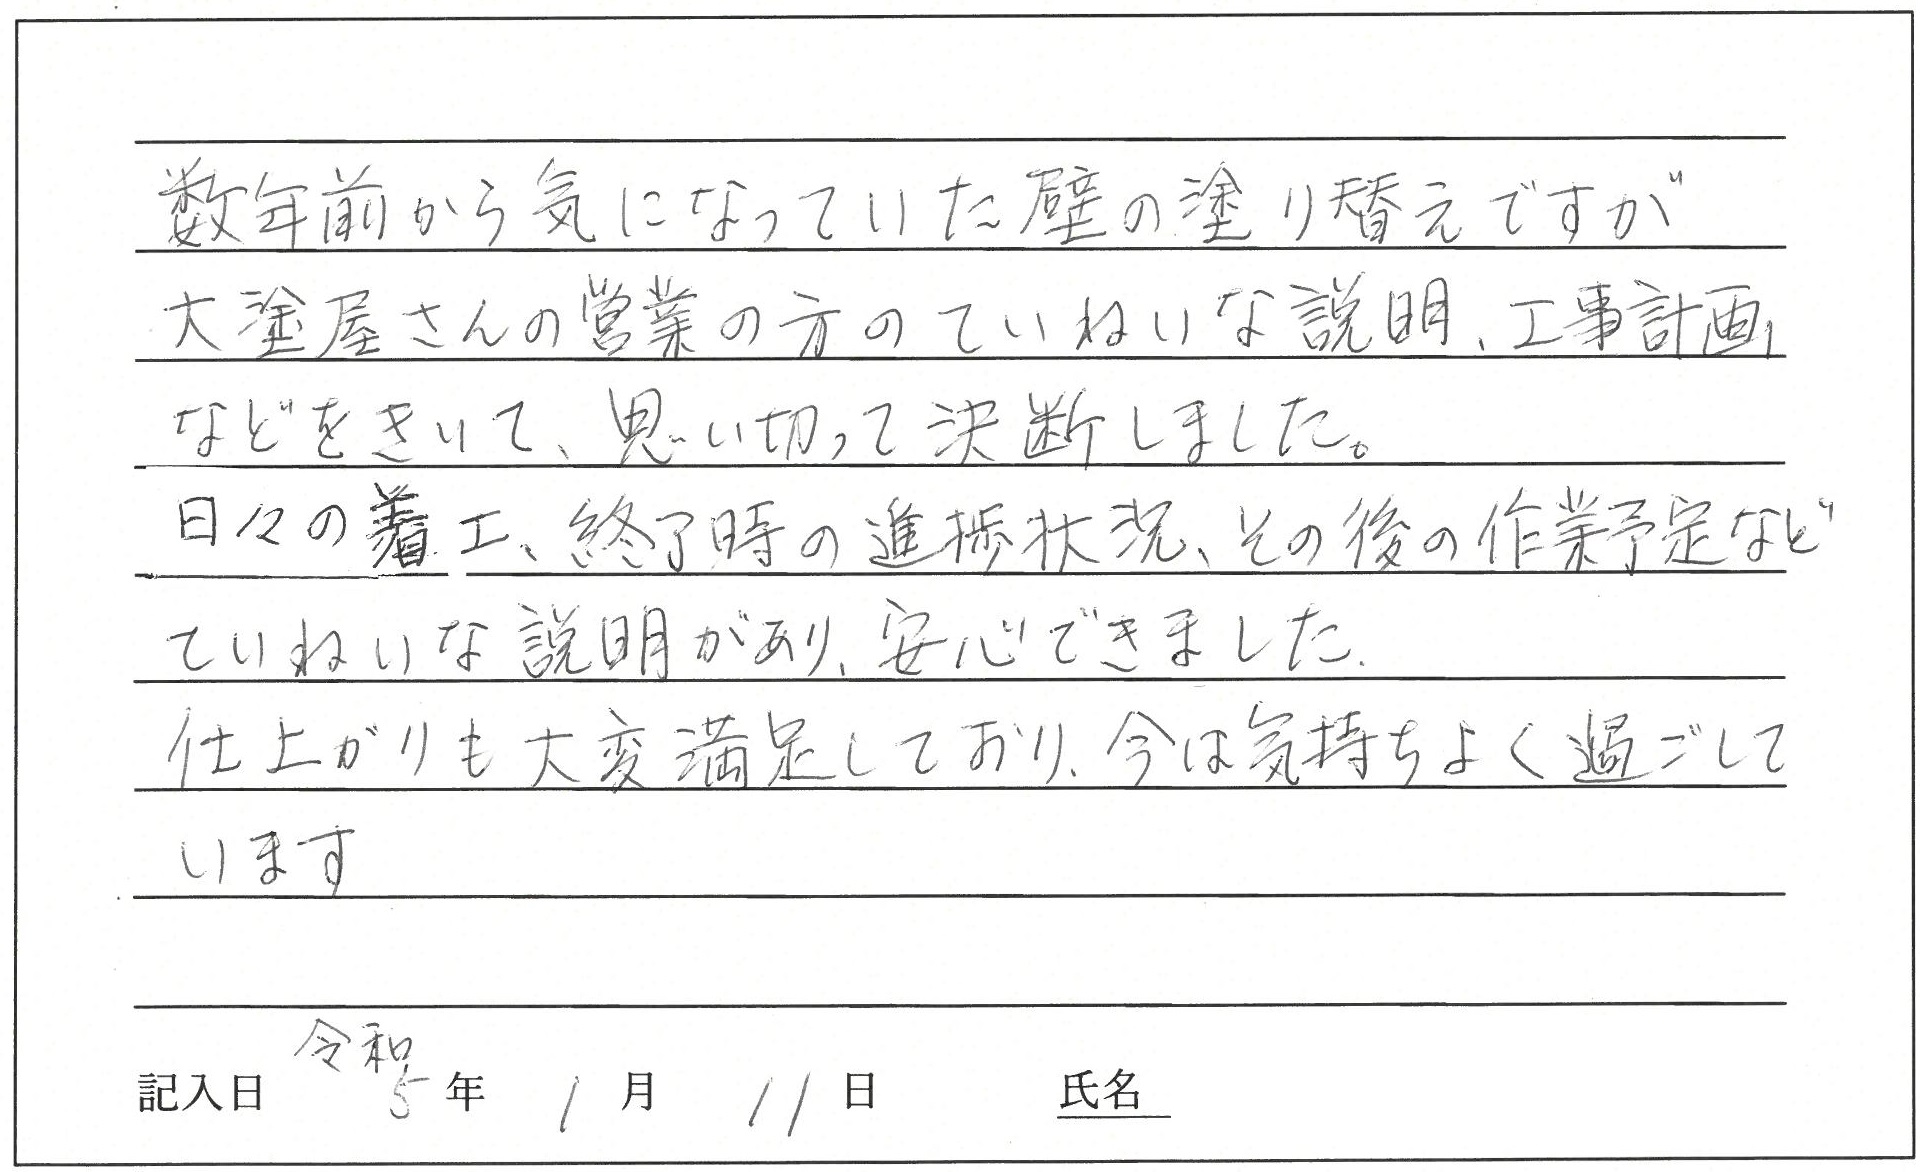 数年前から気になっていた壁の塗り替えですが
大塗屋さんの営業の方のていねいな説明、工事計画
などをきいて、思い切って決断しました。
日々の着工、終了時の進捗状況、その後の作業予定など
ていねいな説明があり、安心できました.
仕上がりも大変満足しており、今は気持ちよく過ごして
います
令和
記入日 5年 1月 11日 氏名